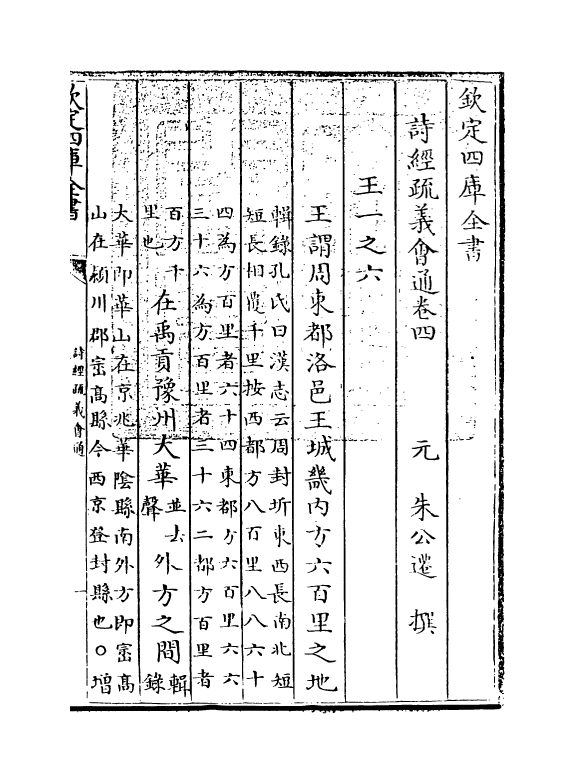 欽定四庫全書
詩經疏義會通卷四
元 朱公遷 撰
王一之六
王謂周東都洛邑王城畿内方六百里之地
輯錄孔氏曰漢志云周封圻東西長南北短
短長相覆千里按西都方八百里八八六十
四為方百里者六十四東都方六百里六六
三十六為方百里者三十六二都方百里者
百方千
里也
在禹貢豫州大華
並去
聲
外方之間
輯
錄
大華即華山在京兆華陰縣南外方即崈髙
山在潁川郡崈髙縣今西京登封縣也○增
欽定四庫全書
詩經疏義會通
一